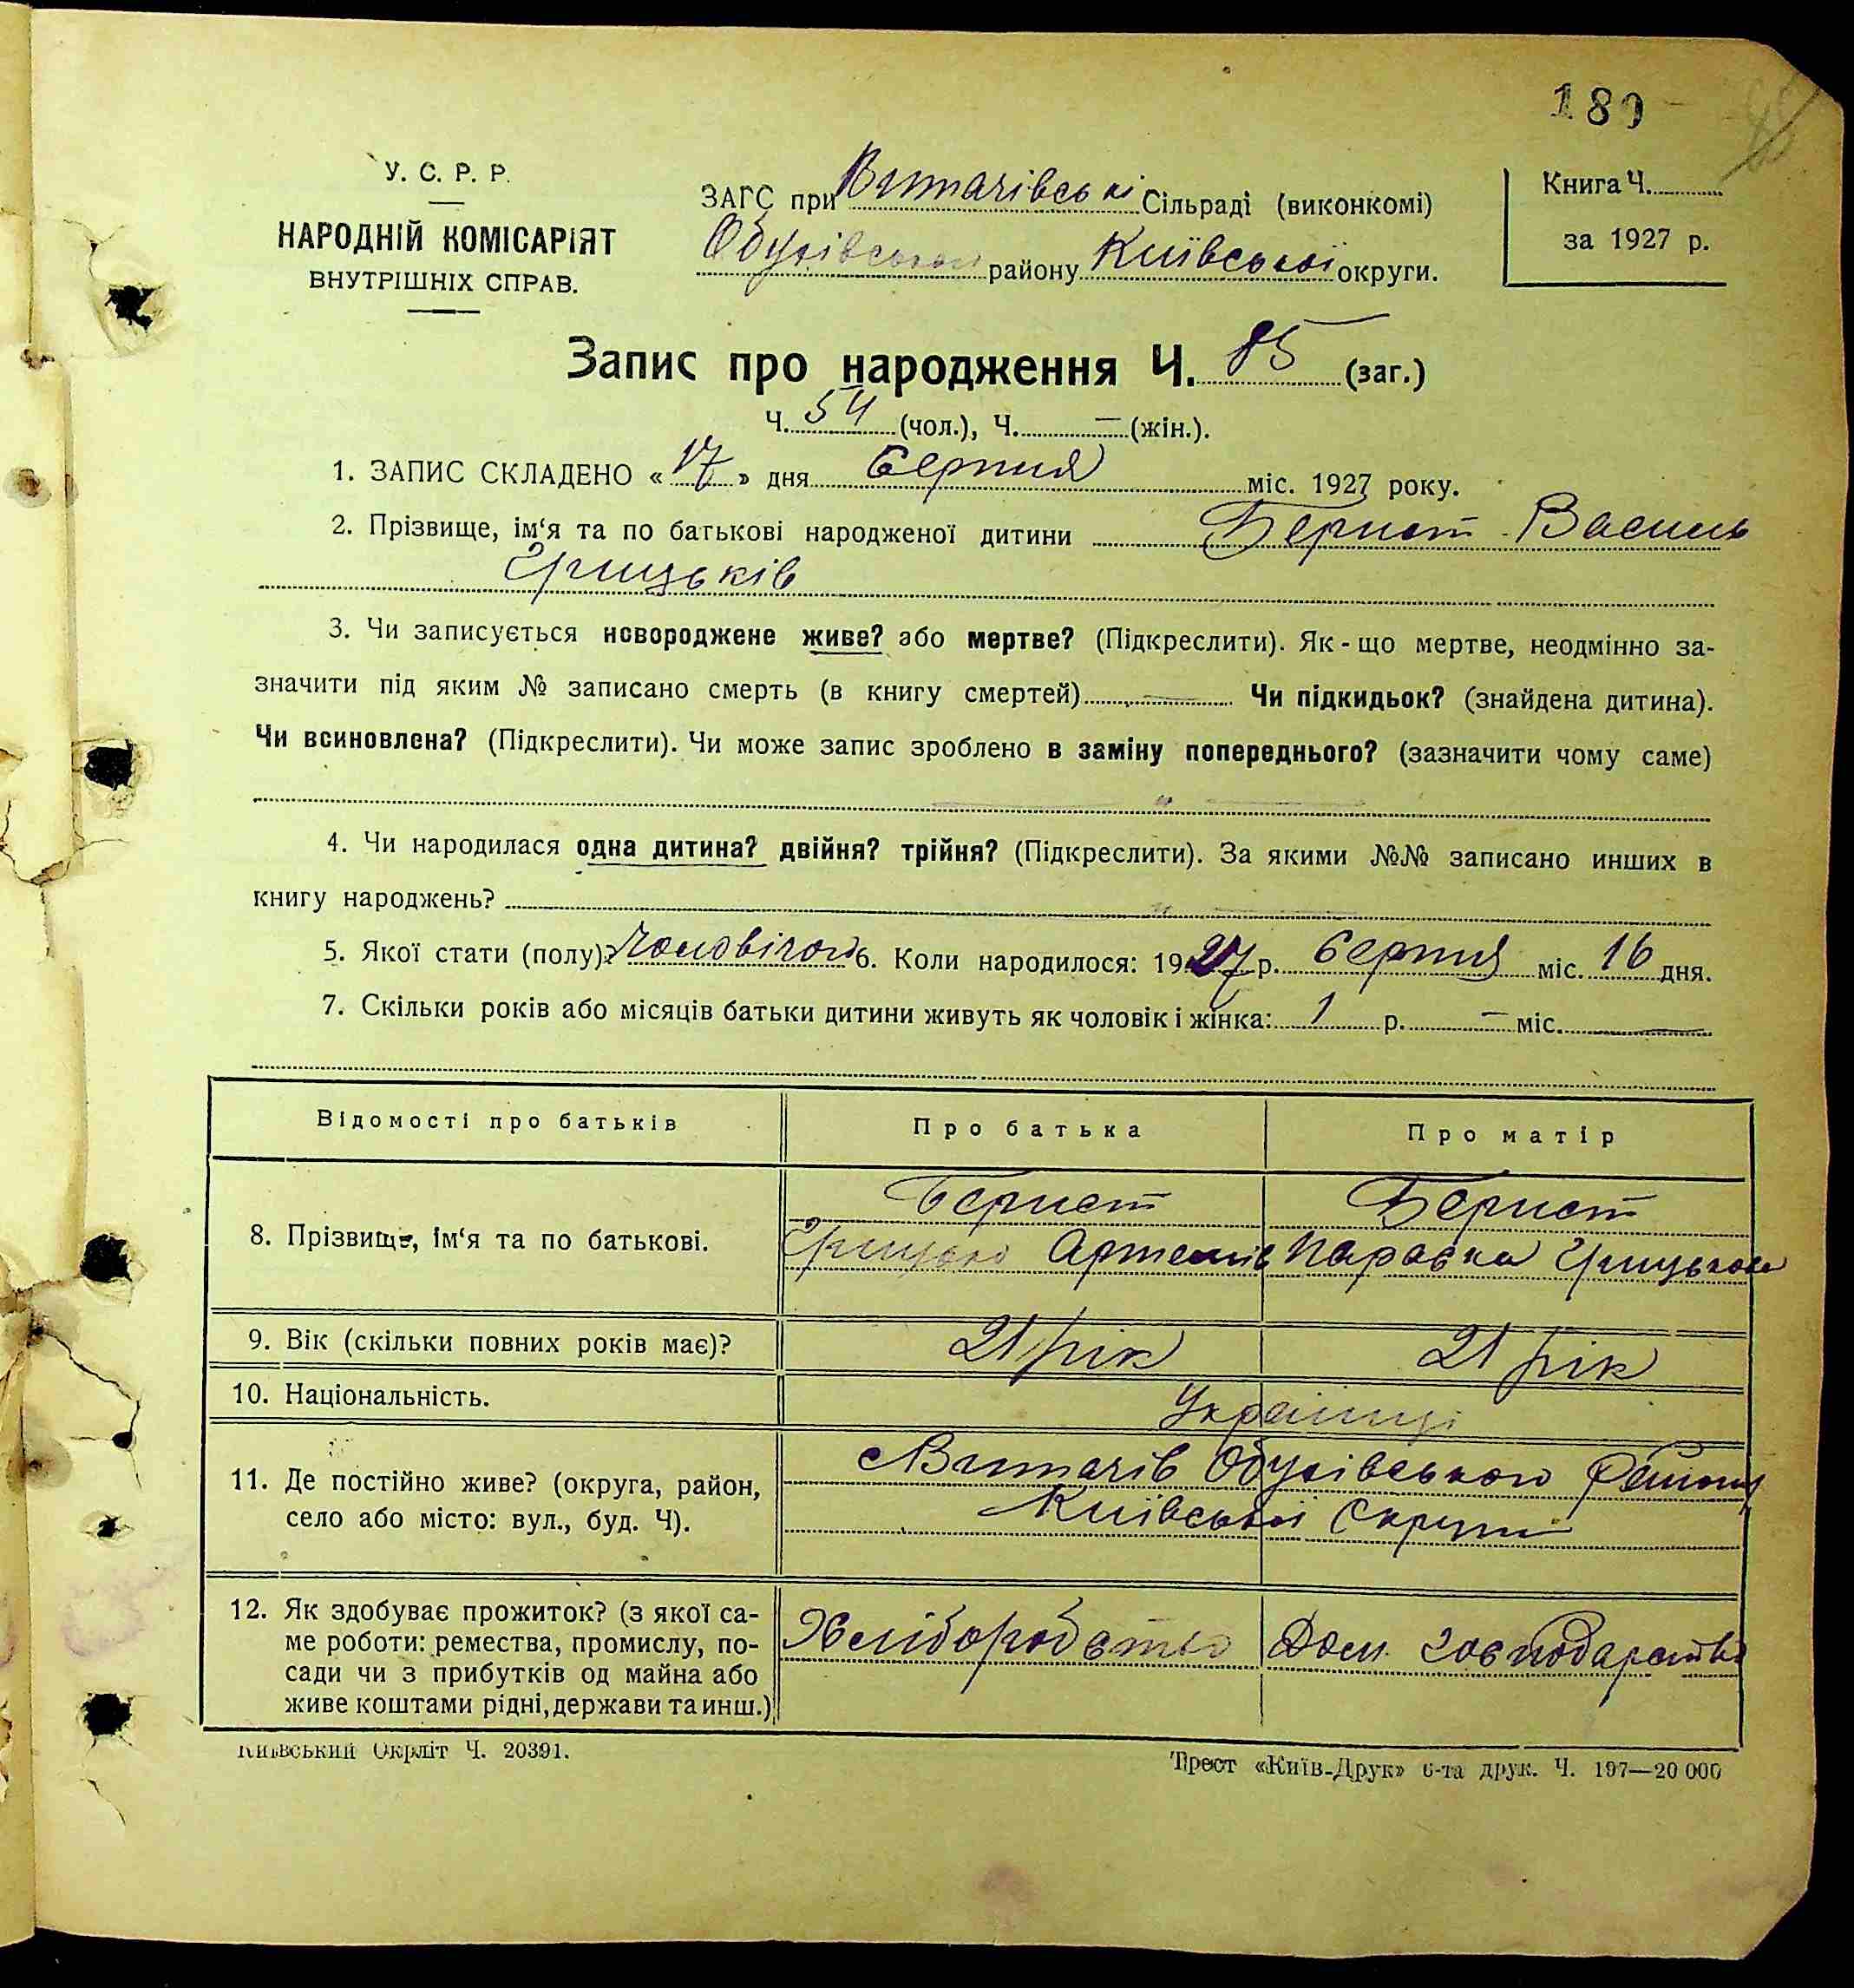 189
У. С. Р. Р.
НАРОДНІЙ КОМІСАРІЯТ
ВНУТРІШНІХ СПРАВ.
ЗАГС при Витачівські Сільраді (виконкомі)
Обухівського району Київської округи.
Книга Ч.
за 1927 р.
Запис про народження Ч. 85 (заг.)
Ч. 54 (чол.), Ч. — (жін.).
1. ЗАПИС СКЛАДЕНО « 17 » дня Серпня міс. 1927 року.
2. Прізвище, ім‘я та по батькові народженої дитини Берист Василь
Грицьків
3. Чи записується новороджене живе? або мертве? (Підкреслити). Як-що мертве, неодмінно за-
значити під яким № записано смерть (в книгу смертей) — Чи підкидьок? (знайдена дитина).
Чи всиновлена? (Підкреслити). Чи може запис зроблено в заміну попереднього? (зазначити чому саме)
— „ —
4. Чи народилася одна дитина? двійня? трійня? (Підкреслити). За якими №№ записано инших в
книгу народжень? „ —
5. Якої стати (полу)? Чоловічої 6. Коли народилося: 1927 р. Серпня міс. 16 дня.
7. Скільки років або місяців батьки дитини живуть як чоловік і жінка: 1 р. — міс. —
Відомості про батьків
Про батька
Про матір
8. Прізвище, ім‘я та по батькові.
Берист
Грицько Артемів
Берист
Параска Грицькова
9. Вік (скільки повних років має)?
21 рік
21 рік
10. Національність.
Українці
11. Де постійно живе? (округа, район,
село або місто: вул., буд. Ч).
с Витачів Обухівського Району
Київської Округи
12. Як здобуває прожиток? (з якої са-
ме роботи: ремества, промислу, по-
сади чи з прибутків од майна або
живе коштами рідні, держави та инш.)
Хліборобство
Дом. господарство
Київський Окрліт Ч. 20391.
Трест «Київ-Друк» 6-та друк. Ч. 197—20 000